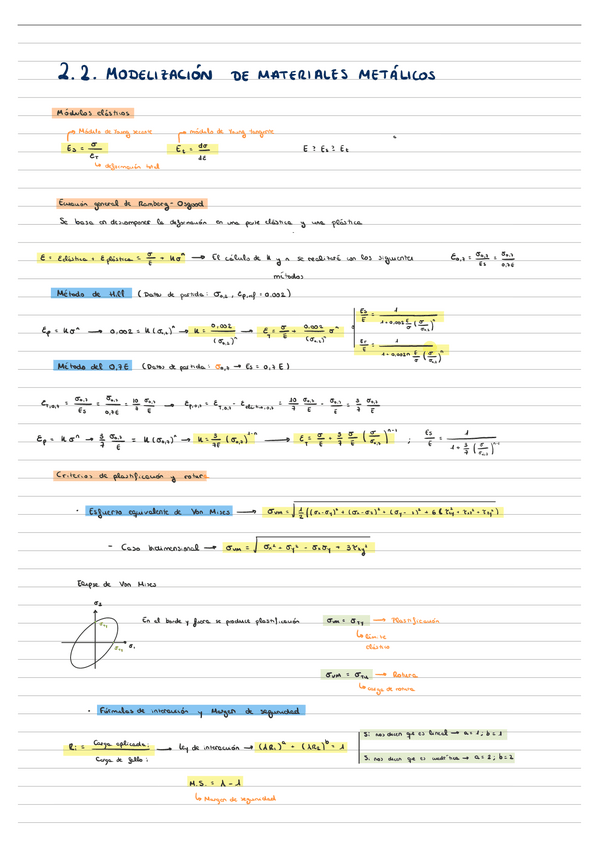 2.2. MODELIZACIÓN DE MATERIALES METÁLICOS
Módulos elásticos
Módulo de Young secante módulo de Young tangente
E_s = σ/ε_T E_t = dσ/dε E ? E_s ? E_t
deformación total
Ecuación general de Ramberg-Osgood
Se basa en descomponer la deformación en una parte elástica y una plástica
ε = ε elástica + ε plástica = σ/E + Kσ^n → El cálculo de K y n se realizará con los siguientes
métodos
Método de Hill (Datos de partida: σ_0,2, ε_p,inf = 0.002)
ε_p = Kσ^n → 0.002 = K(σ_0,2)^n → K = 0.002/(σ_0,2)^n → ε_T = σ/E + 0.002/(σ_0,2)^n σ^n
Método del 0,7E (Datos de partida: σ_0,7 → E_s = 0,7E)
ε_T,0,7 = σ_0,7/E_s = σ_0,7/0,7E = 10/7 σ_0,7/E → ε_p,0,7 = ε_T,0,7 - = 10/7 σ_0,7/E - σ_0,7/E = 3/7 σ_0,7/E
ε_p = Kσ^n → 3/7 σ_0,7/E = K(σ_0,7)^n → K = 3/7E (σ_0,7)^1-n → ε_T = σ/E + 3/7 σ/E (σ/σ_0,7)^n-1 ;
Criterios de plastificación y rotura
· Esfuerzo equivalente de Von Mises →
- Caso bidimensional →
Elipse de Von Mises
σ_2
En el borde y fuera se produce plastificación σ_VM = σ_Ty → Plastificación
σ_1
Límite
elástico
σ_VM = σ_Tu → Rotura
carga de rotura
· Fórmulas de interacción y Margen de seguridad
R_i = Carga aplicada_i / Carga de fallo_i → Ley de interacción → (λR_1)^a + (λR_2)^b = 1
Si nos dicen que es lineal → a = 1; b = 1
Si nos dicen que es cuadrática → a = 2; b = 2
M.S. = λ - 1
Margen de seguridad